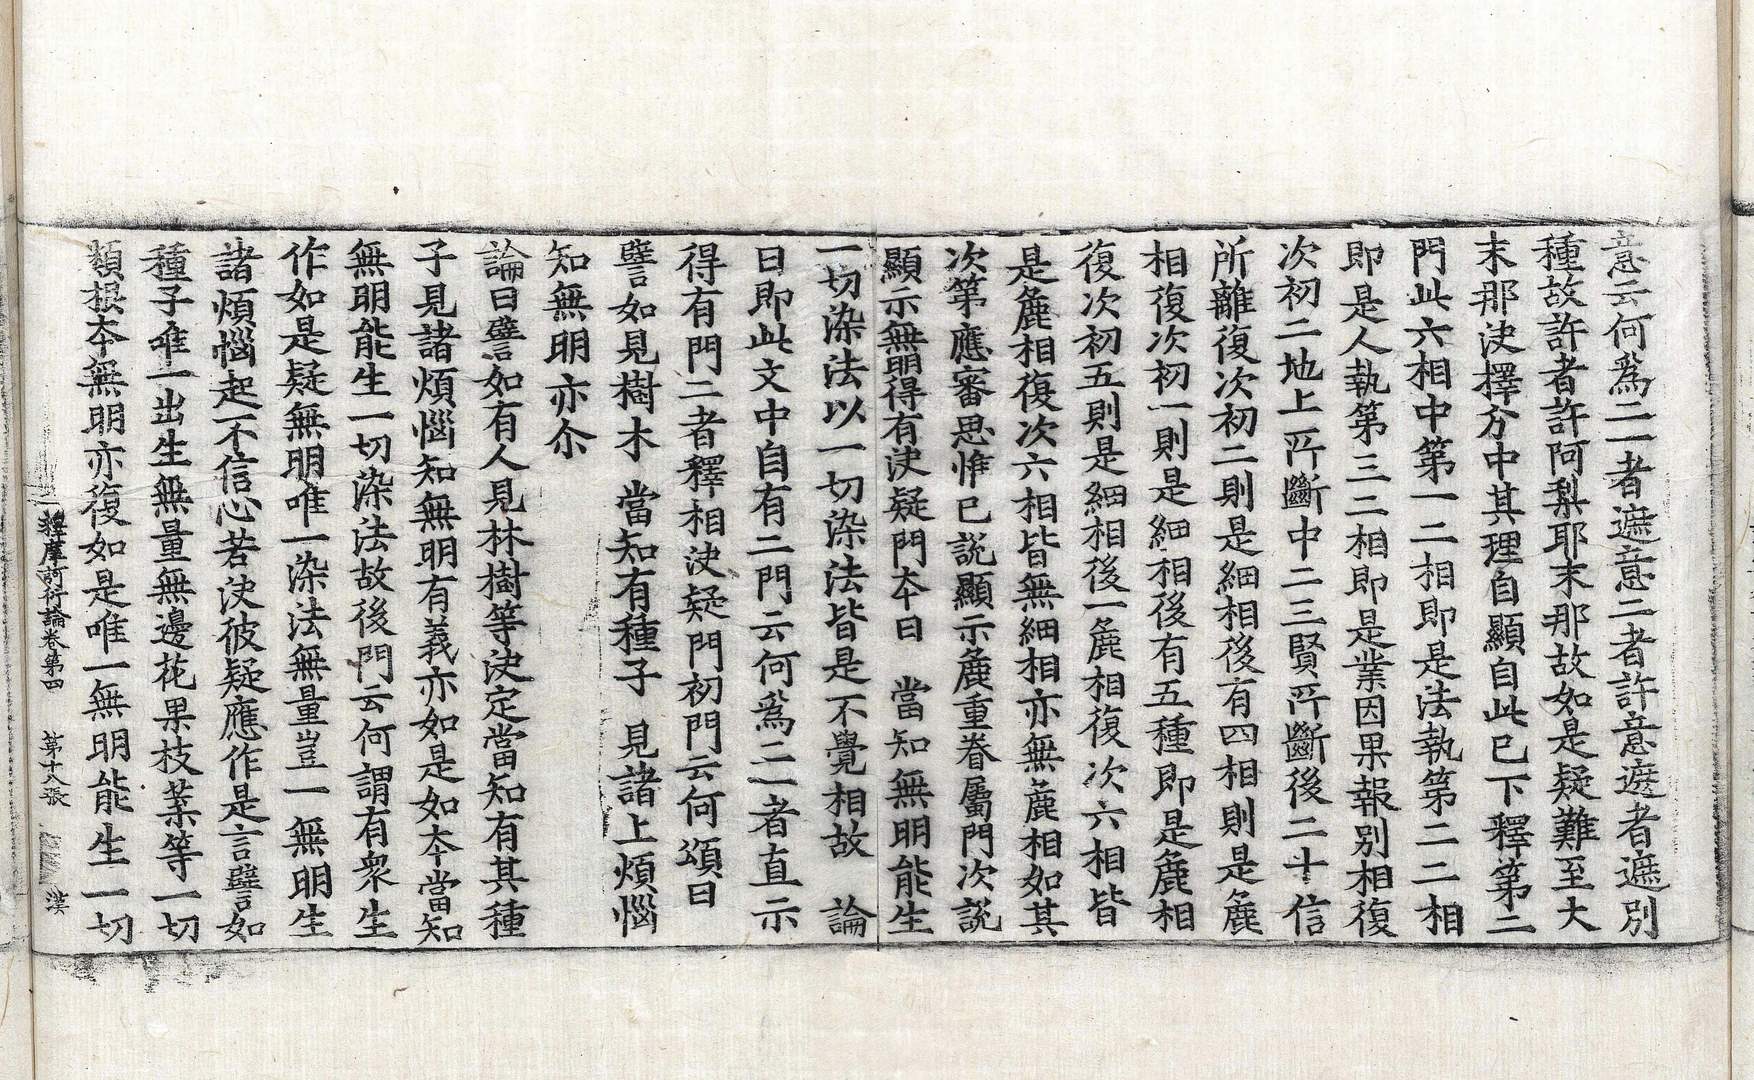 意云何爲二一者遮意二者許意遮者遮別
種故許者許阿梨耶末那故如是疑難至大
末那決擇分中其理自顯自此已下釋第二
門此六相中第一二相即是法執第二二相
即是人執第三二相即是業因果報別相復
次初二地上所斷中二三賢所斷後二十信
所離復次初二則是細相後有四相則是麁
相復次初一則是細相後有五種即是麁相
復次初五則是細相後一麁相復次六相皆
是麁相復次六相皆無細相亦無麁相如其
次第應審思惟已說顯示麁重眷屬門次說
顯示無明得有決疑門本曰　當知無明能生
一切染法以一切染法皆是不覺相故　論
曰即此文中自有二門云何爲二一者直示
得有門二者釋相決疑門初門云何頌曰
譬如見樹木　當知有種子　見諸上煩惱
知無明亦尒
論曰譬如有人見林樹等決定當知有其種
子見諸煩惱知無明有義亦如是如本當知
無明能生一切染法故後門云何謂有衆生
作如是疑無明唯一染法無量豈一無明生
諸煩惱起不信心若決彼疑應作是言譬如
種子唯一出生無量無邊花果枝葉等一切
類根本無明亦復如是唯一無明能生一切
釋摩訶衍論卷第四　第十八張　漢